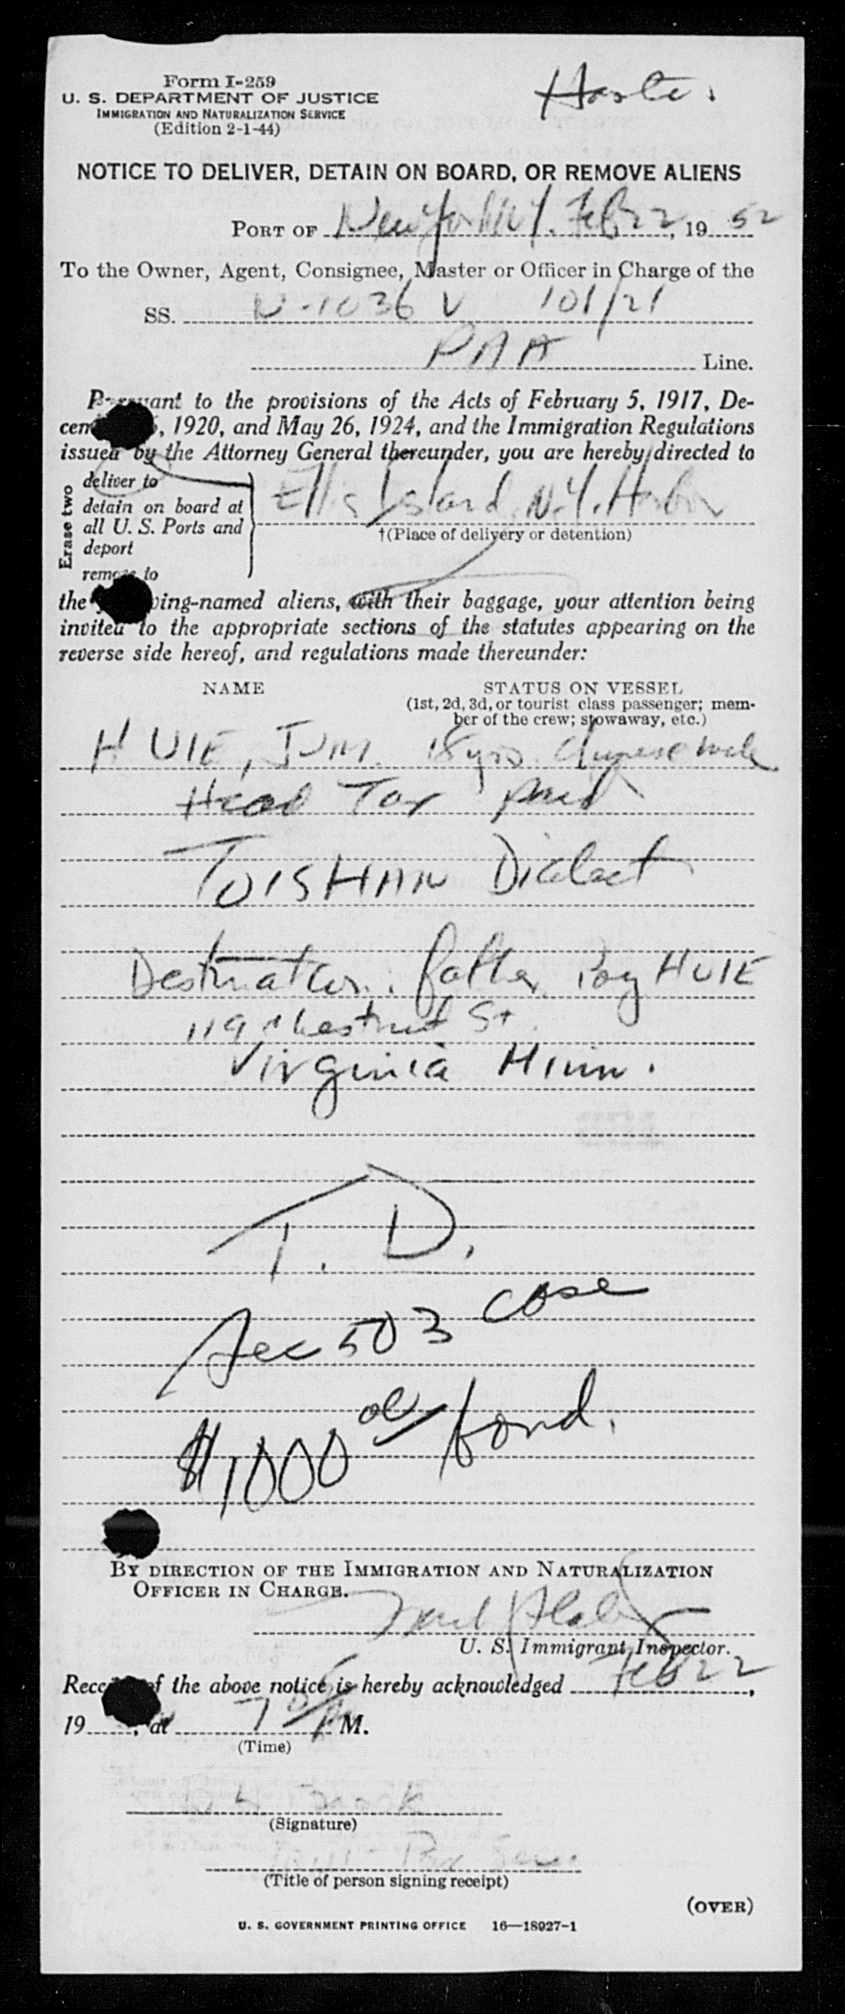 Form I-259
U. S. DEPARTMENT OF JUSTICE
IMMIGRATION AND NATURALIZATION SERVICE
(Edition 2-1-44)
NOTICE TO DELIVER, DETAIN ON BOARD, OR REMOVE ALIENS
PORT OF New York N.Y. Feb 22, 19 52
To the Owner, Agent, Consignee, Master or Officer in Charge of the
SS. N-1036 V 101/21
PAA Line.
Pursuant to the provisions of the Acts of February 5, 1917, De-
cem , 1920, and May 26, 1924, and the Immigration Regulations
issued by the Attorney General thereunder, you are hereby directed to
Erase two
deliver to
detain on board at
all U. S. Ports and
deport
remove to
Ellis Island N.Y. Harbor
†(Place of delivery or detention)
the ing-named aliens, with their baggage, your attention being
invited to the appropriate sections of the statutes appearing on the
reverse side hereof, and regulations made thereunder:
NAME STATUS ON VESSEL
(1st, 2d, 3d, or tourist class passenger; mem-
ber of the crew; stowaway, etc.)
HUIE, JIM. 18 yrs. Chinese male
Head Tax paid
TOISHAN Dialect
Destination: father Poy HUIE
119 Chestnut St.
Virginia Minn.
T. D.
Sec 503 case
$1000 00/ bond.
BY DIRECTION OF THE IMMIGRATION AND NATURALIZATION
OFFICER IN CHARGE.
U. S. Immigrant Inspector.
Rece of the above notice is hereby acknowledged Feb 22,
19 , at 7 AM.
(Time)
(Signature)
(Title of person signing receipt)
(OVER)
U. S. GOVERNMENT PRINTING OFFICE 16—18927-1